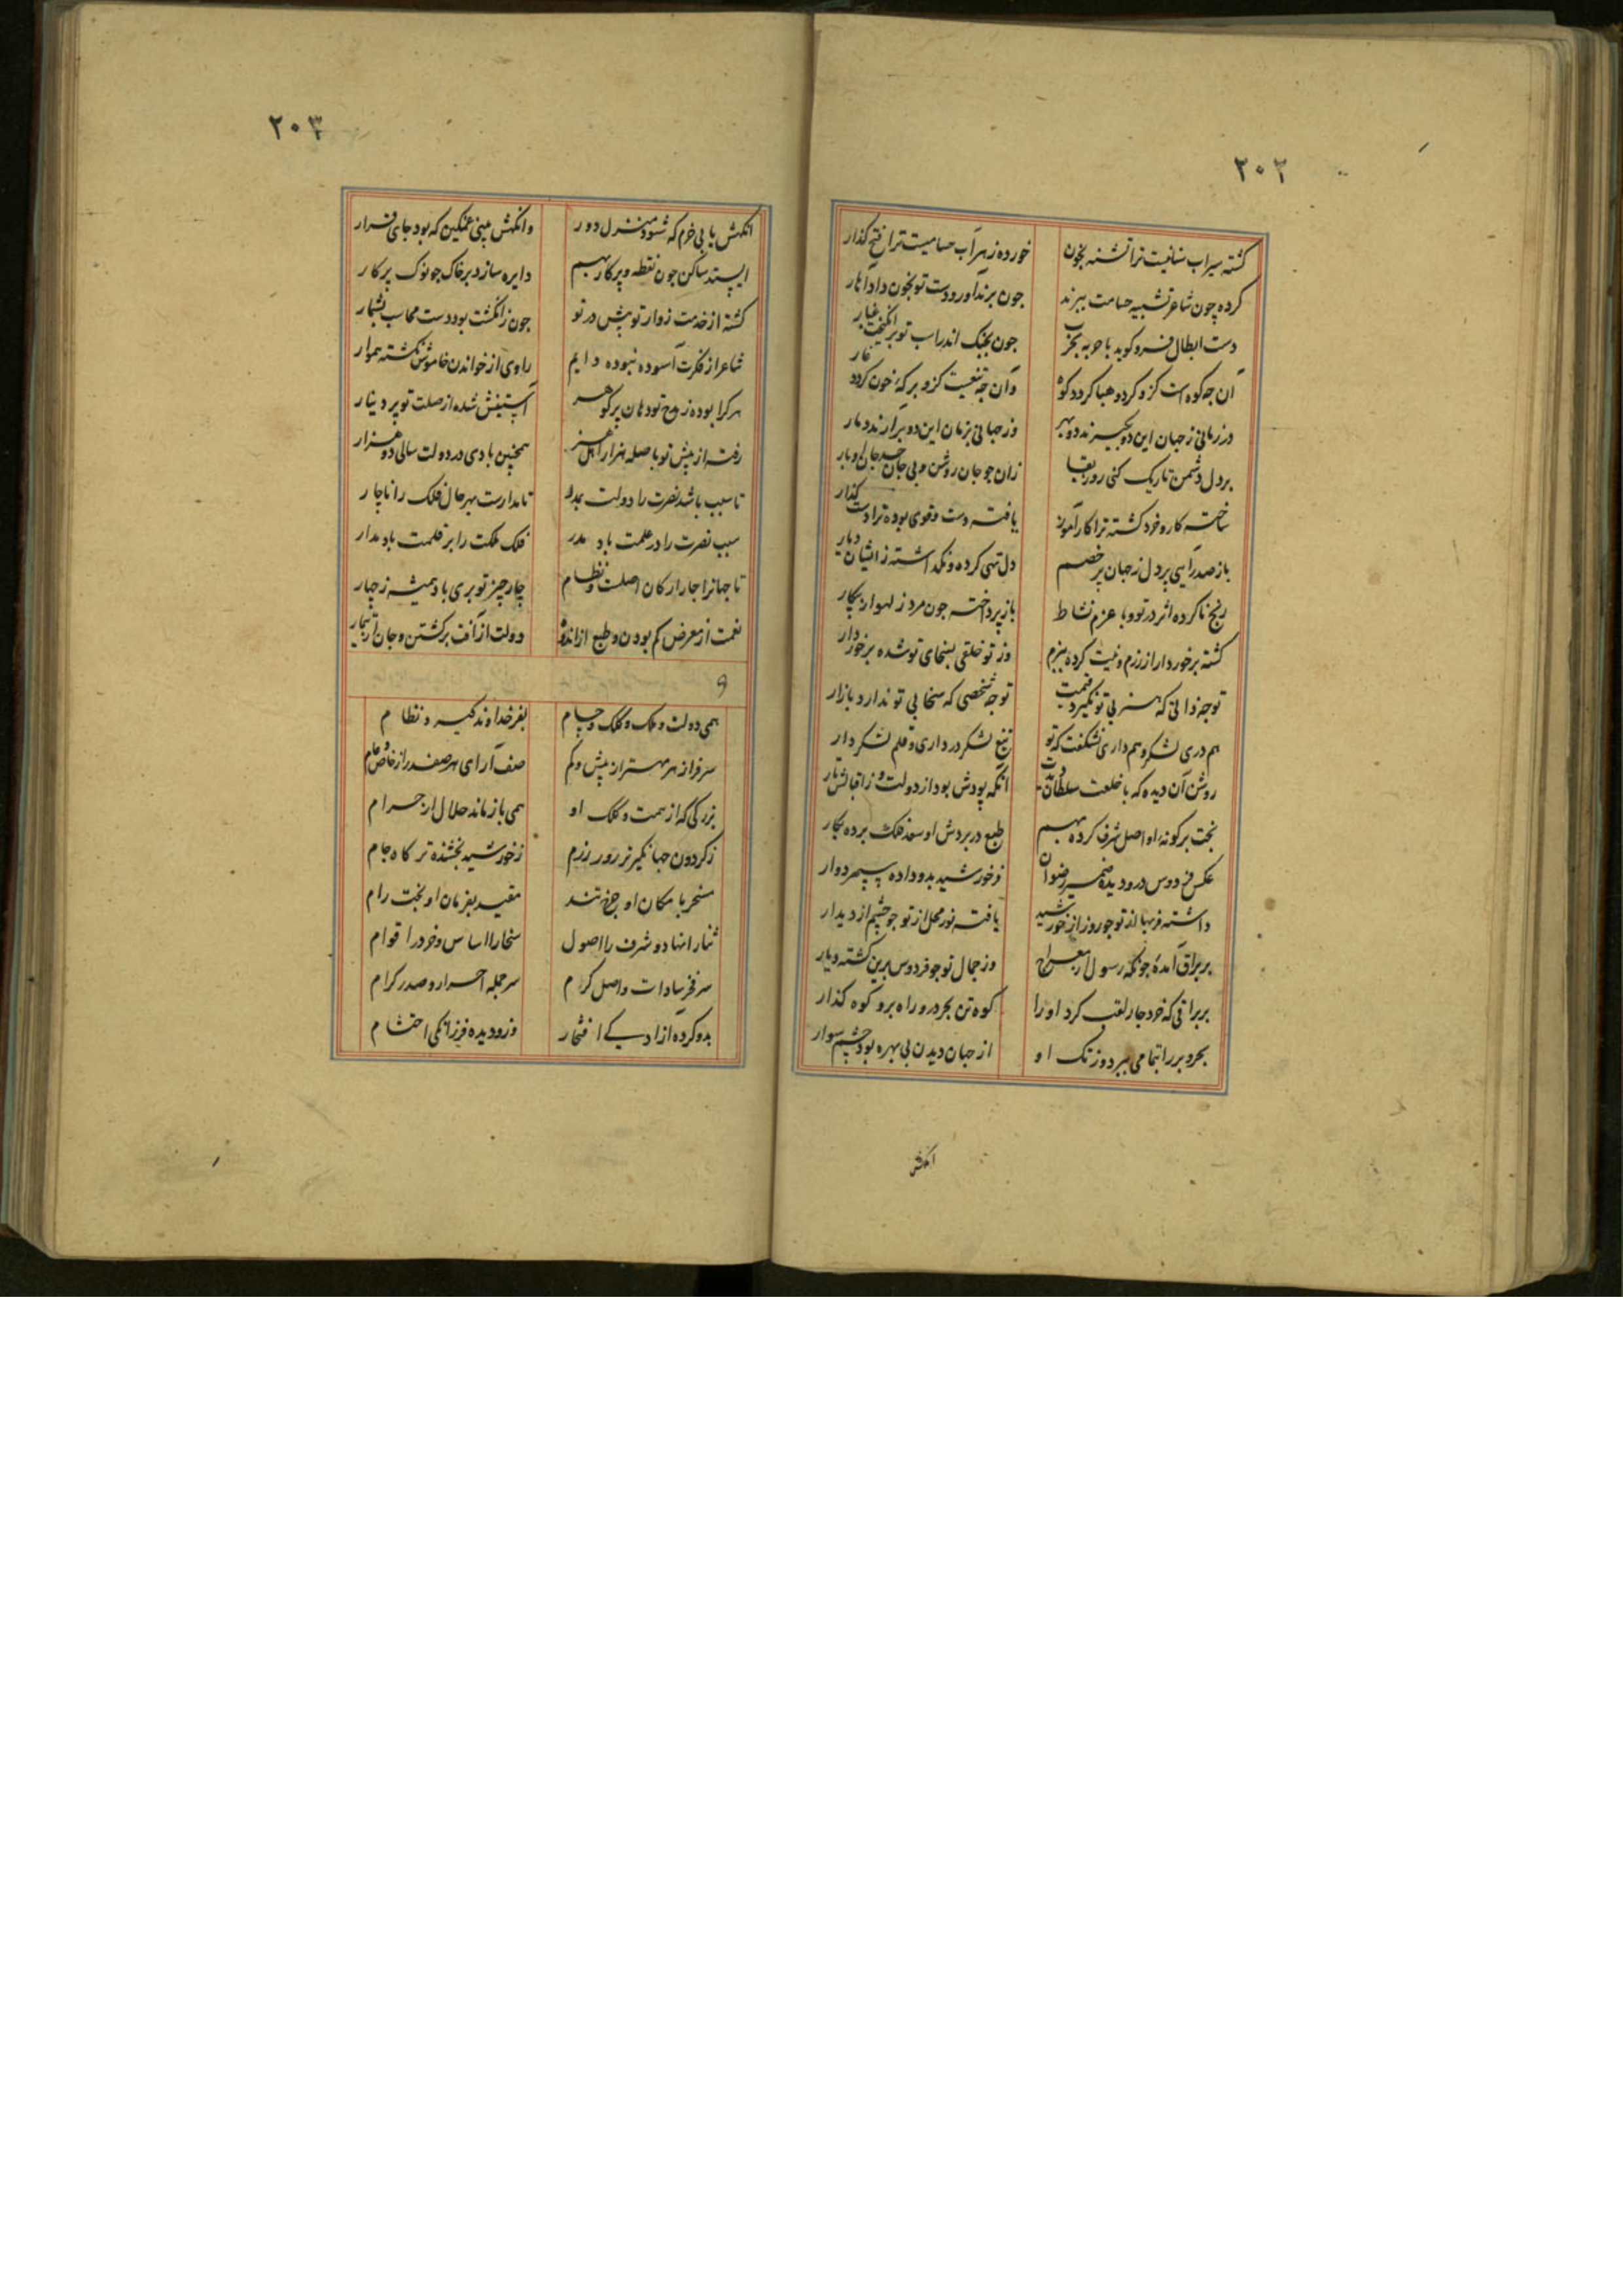 ۲۰۲
کشته سیراب سنانیت ترا تشنه بخون خورده زهر آب حسامیت ترا فتح کذار
کرده چون شاعر تشبیه حسامت ببرند جون برند آورد دست تو بخون دادا هار
دست ابطال فرو کوبد با حربه بحرب جون بجنک اندر اسب تو برانکیخت غبار
آن جه کوه است کزو کرد و هبا کردد کوه وان جه تیغیست کزو برکهٔ خون کردد غار
در زمانی ز جهان این دو بجیزند دو بهر وز جهانی بزمان این دو برآرند دمار
بر دل دشمن تاریک کنی روز بقا زان جو جان روشن و بی جان جسد جان اوبار
ساخته کار و خرد کشته ترا کارآموز یافته دست و قوی بوده ترا دست کذار
باز صدر آیی پر دل ز جهان پر خصم دل تهی کرده و نکذاشته زایشان دیار
رنج ناکرده اثر در تو و با عزم نشاط باز پرداخته جون مرد ز لهو از پیکار
کشته برخوردار از رزم و نیت کرده ببزم وز تو خلقی بسخای تو شده برخوردار
توجه ذاتی که هنر بی تو نکیرد قیمت توجه شخصی که سخا بی تو ندارد بازار
هم دری لشکر و هم داری نشکفت که تو تیغ لشکر در داری و قلم لشکر دار
روشن آن دیده که با خلعت سلطان دیدت آنکه پودش بود از دولت و ز اقبالش تار
بخت بر کونهٔ او اصل شرف کرده بهم طبع در بردش او سعد فلک برده بکار
عکس فردوس درو دیده ضمیر رضوان نور خورشید بدو داده سپهر دوار
داشته فر بها از تو جو روز از خورشید یافته نور محل از تو جو چشم از دیدار
بر براق آمدهٔ جونکه رسول از معراج وز جمال تو جو فردوس برین کشته دیار
بر براقی که خرد جار لقب کرد او را کوه تن بحر در و راه بر و کوه کذار
بحر و بر را بتمامی ببرد وز تک او از جهان دیدن بی بهره بود چشم سوار
انکهش
۲۰۳
انکهش یابی خرم که شود منزل دور وانکهش بینی غمکین که بود جای قرار
ایستد ساکن جون نقطه و پرکار بهم دایره سازد بر خاک جو نوک پرکار
کشته از خدمت زوار تو پیش در تو جون ز انکشت بود دست محاسب بشمار
شاعر از فکرت آسوده نبوده دایم راوی از خواندن خاموش نکشته هموار
هر کرا بوده ز مدح تو دهان پر کوهر آستینش شده از صلت تو پر دینار
رفته از پیش تو با صله هزار اهل هنر همچنین بادی در دولت سالی دو هزار
تا سبب باشد نصرت را دولت بمدد تا مدارست بهر حال فلک را ناچار
سبب نصرت را در علمت باد مدد فلک ملکت را بر قلمت باد مدار
تا جهانرا جار ارکان اصلست و نظام چار چیز تو بری باد همیشه ز چهار
نعمت از معرض کم بودن و طبع از اندوه دولت از آفت برکشتن و جان از تیمار
همی دولت و ملک و کلک و حسام بفر خداوند کیرد نظام
سرفراز هر مهتر از بیش و کم صف آرای هر صفدر از خاص و عام
بزرکی که از همت و کلک او همی باز ماند حلال از حرام
ز کردون جهانکیرتر روز رزم ز خورشید بخشنده تر کاه جام
مسخر بامکان او چرخ تند مقید بفرمان او بخت رام
ثنا را نهاد و شرف را اصول سخا را اساس و خرد را قوام
سر فخر سادات و اصل کرام سر جمله احرار و صدر کرام
بدو کرده آزادکی افتخار وزو دیده فرزانکی احتشام